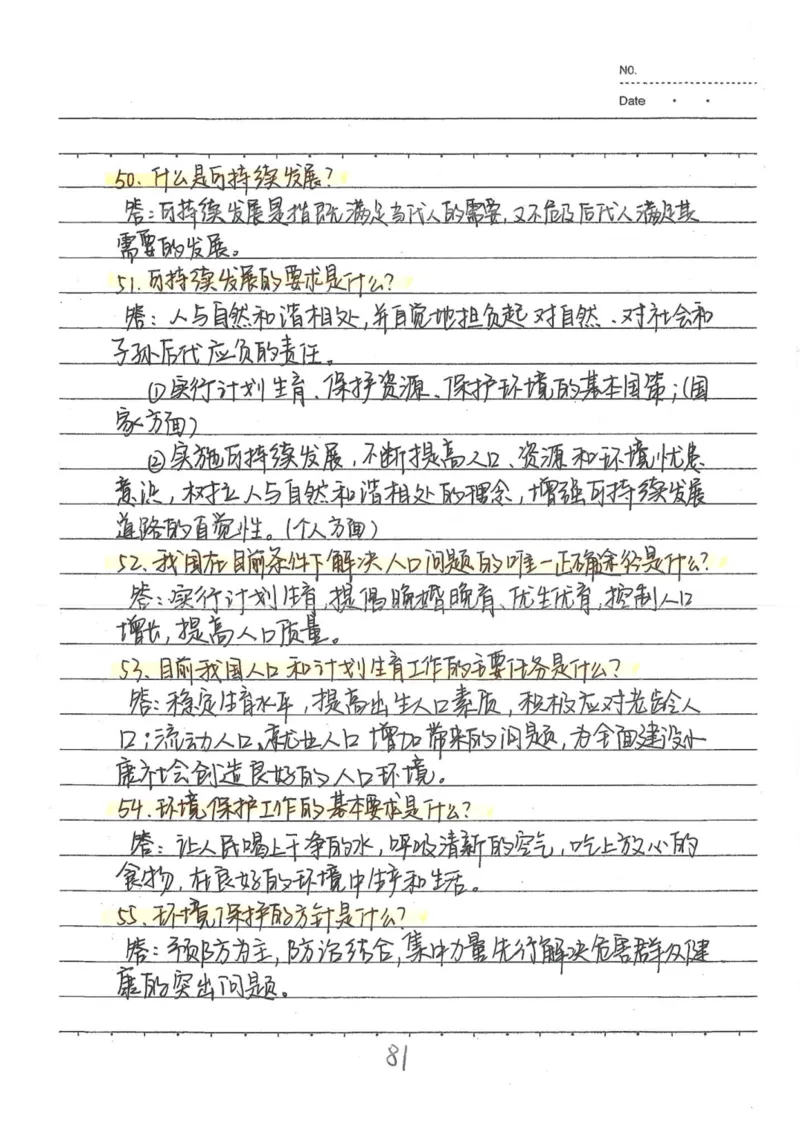 NO.
Date
50.什么是可持续发展?
答:可持续发展是指既满足当代人的需要,又不危及后代人满足其
需要的发展。
51.可持续发展的要求是什么?
答:人与自然和谐相处,并自觉地担负起对自然、对社会和
子孙后代应负的责任。
①实行计划生育、保护资源、保护环境的基本国策;(国
家方面)
②实施可持续发展,不断提高人口、资源和环境忧患
意识,树立人与自然和谐相处的理念,增强可持续发展
道路的自觉性。(个人方面)
52.我国在目前条件下解决人口问题的唯一正确途径是什么?
答:实行计划生育,提倡晚婚晚育、优生优育,控制人口
增长,提高人口质量。
53.目前我国人口和计划生育工作的主要任务是什么?
答:稳定生育水平,提高出生人口素质,积极应对老龄人
口;流动人口、就业人口增加带来的问题,为全面建设小
康社会创造良好的人口环境。
54.环境保护工作的基本要求是什么?
答:让人民喝上干净的水,呼吸清新的空气,吃上放心的
食物,在良好的环境中生产和生活。
55.环境保护的方针是什么?
答:预防为主,防治结合,集中力量先行解决危害群众健
康的突出问题。
81